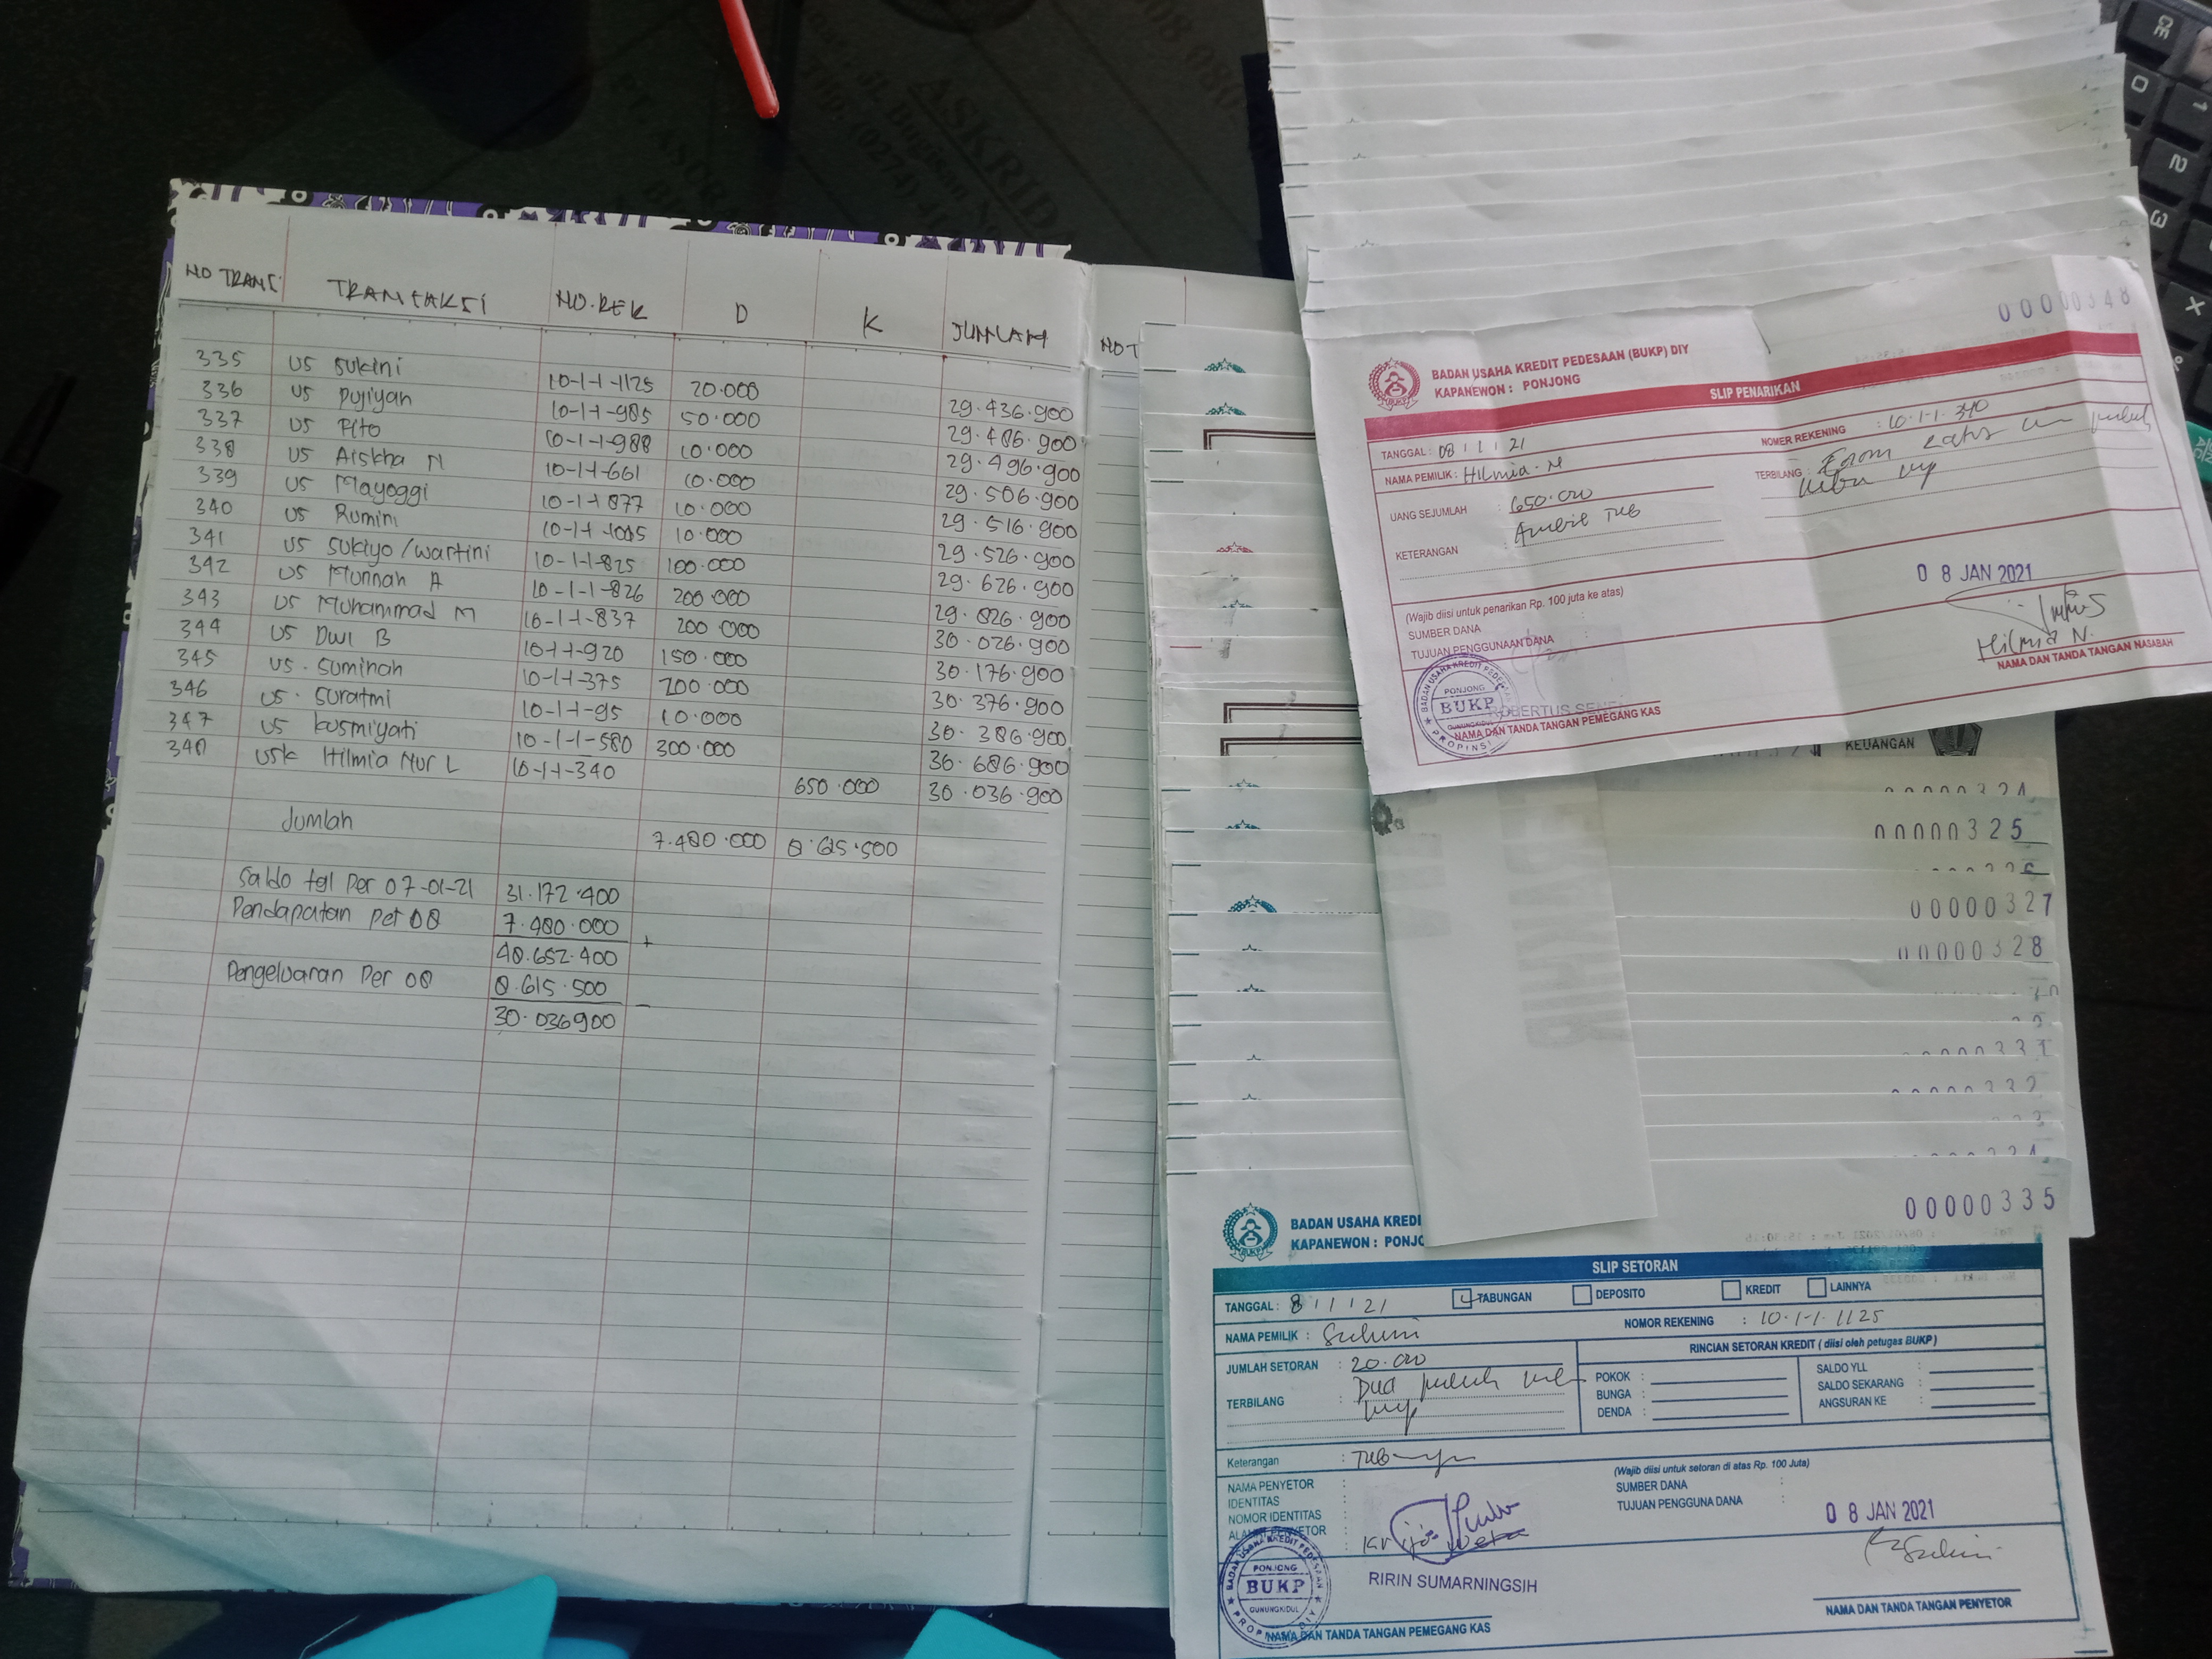 NO TRANS TRANSAKSI NO.REK D K JUMLAH
335 US Sukini 10-1-1-1125 20.000 29.436.900
336 US Pujiyah 10-1-1-985 50.000 29.486.900
337 US Fito 10-1-1-988 10.000 29.496.900
338 US Aiskha N 10-1-1-661 10.000 29.506.900
339 US Mayoggi 10-1-1-877 10.000 29.516.900
340 US Rumini 10-1-1-1085 10.000 29.526.900
341 US Sukiyo/wartini 10-1-1-825 100.000 29.626.900
342 US Munnah A 10-1-1-826 200.000 29.826.900
343 US Muhammad M 10-1-1-837 200.000 30.026.900
344 US Dwi B 10-1-1-920 150.000 30.176.900
345 US. Suminah 10-1-1-375 200.000 30.376.900
346 US. Suratmi 10-1-1-95 10.000 30.386.900
347 US kusmiyati 10-1-1-580 300.000 30.686.900
348 USK Hilmia Nur L 10-1-1-340 650.000 30.036.900
Jumlah 7.480.000 8.615.500
Saldo tgl Per 07-01-21 31.172.400
Pendapatan per 08 7.480.000 +
48.652.400
Pengeluaran Per 08 8.615.500 -
30.036900
NO T
00000348
BADAN USAHA KREDIT PEDESAAN (BUKP) DIY
KAPANEWON : PONJONG
SLIP PENARIKAN
TANGGAL : 08 / 1 / 21
NOMER REKENING : 10.1-1.340
NAMA PEMILIK : Hilmia. N
TERBILANG : Enam ratus lima puluh
ribu rp
UANG SEJUMLAH : 650.000
KETERANGAN : Ambil Tab
(Wajib diisi untuk penarikan Rp. 100 juta ke atas)
SUMBER DANA :
TUJUAN PENGGUNAAN DANA :
0 8 JAN 2021
Hilmia N.
NAMA DAN TANDA TANGAN NASABAH
BADAN USAHA KREDIT PEDESAAN
PONJONG
BUKP
GUNUNGKIDUL
PROPINSI
ROBERTUS
NAMA DAN TANDA TANGAN PEMEGANG KAS
KEUANGAN
00000325
00000327
00000328
00000335
BADAN USAHA KREDI
KAPANEWON : PONJO
SLIP SETORAN
TANGGAL : 8 / 1 / 21 TABUNGAN DEPOSITO KREDIT LAINNYA
NAMA PEMILIK : Sukini
NOMOR REKENING : 10.1-1.1125
JUMLAH SETORAN : 20.000
TERBILANG : Dua puluh ribu
rp
RINCIAN SETORAN KREDIT ( diisi oleh petugas BUKP )
POKOK :
BUNGA :
DENDA :
SALDO YLL :
SALDO SEKARANG :
ANGSURAN KE :
Keterangan :
NAMA PENYETOR :
IDENTITAS :
NOMOR IDENTITAS :
ALAMAT PENYETOR :
(Wajib diisi untuk setoran di atas Rp. 100 Juta)
SUMBER DANA :
TUJUAN PENGGUNA DANA :
0 8 JAN 2021
Sukini
RIRIN SUMARNINGSIH
BADAN USAHA KREDIT PEDESAAN
PONJONG
BUKP
GUNUNGKIDUL
PROPINSI DIY
NAMA DAN TANDA TANGAN PEMEGANG KAS
NAMA DAN TANDA TANGAN PENYETOR
ASKRID
CE
0
1
2
3
X
%